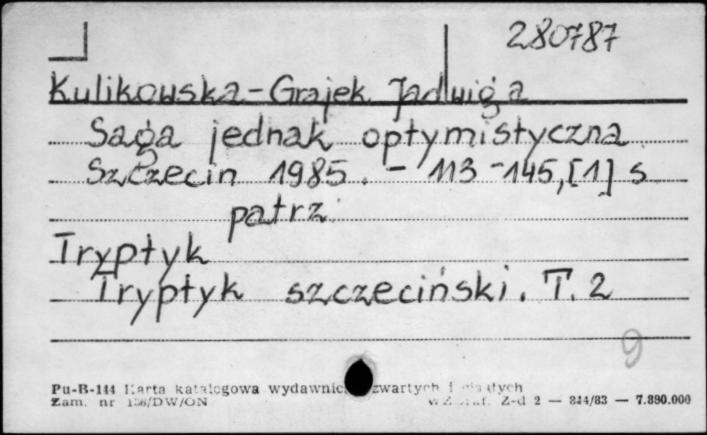 280787
Kulikowska-Grajek Jadwiga
Saga jednak optymistyczna
Szczecin 1985. - 113-145,[1] s.
patrz:
Tryptyk
Tryptyk szczeciński. T. 2
9
Pu-B-144 Karta katalogowa wydawnictw zwartych i ciągłych
Zam. nr 156/DW/ON Z-d 2 — 344/83 — 7.890.000